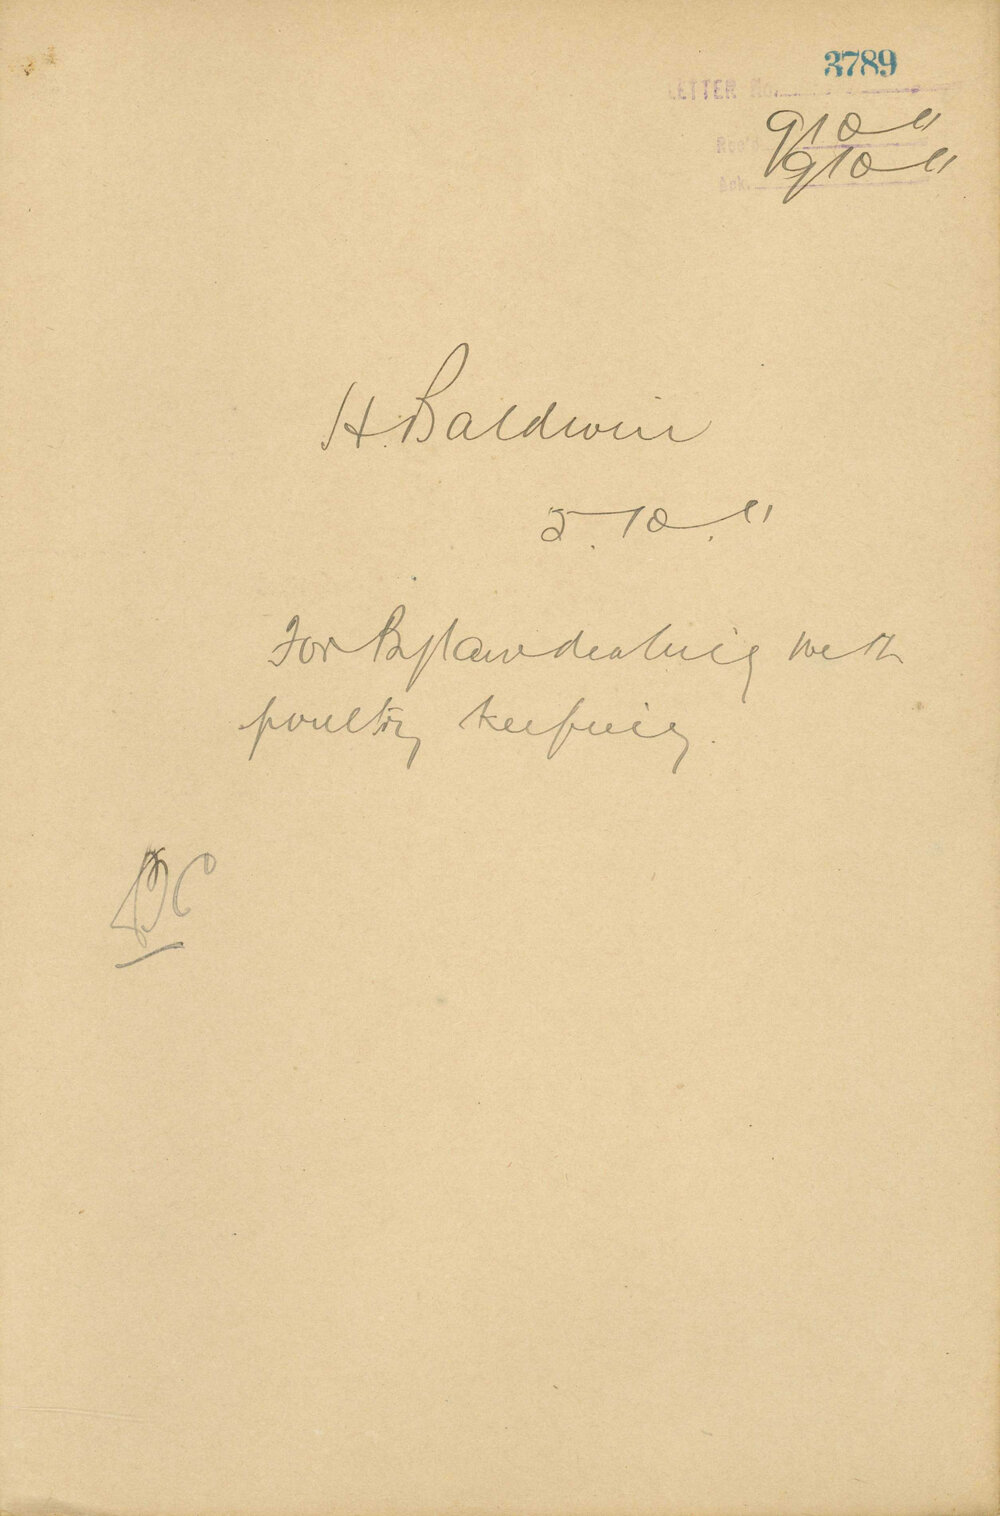 3789
LETTER No.
Rec'd 9/10/11
Ack. 9/10/11
H. Baldwin
5.10.11
For Bylaw dealing with
poultry keeping.